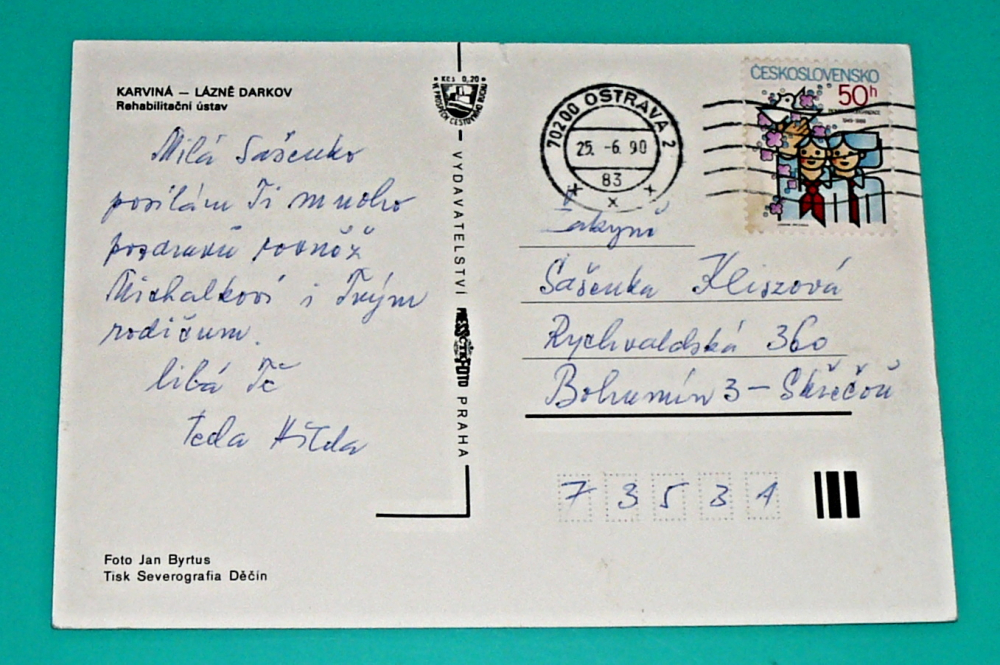 KARVINÁ — LÁZNĚ DARKOV
Rehabilitační ústav
Milá Sašenko
posílám Ti mnoho
pozdravů rovněž
Michalkovi i Tvým
rodičum.
líbá Tě
teta Hilda
Foto Jan Byrtus
Tisk Severografia Děčín
Kčs 0,20
VE PROSPĚCH CESTOVNÍHO RUCHU
VYDAVATELSTVÍ PRESSFOTO PRAHA
70200 OSTRAVA 2
25. -6. 90
83
ČESKOSLOVENSKO
50h
1949-1989
Žákyně
Sašenka Kliszová
Rychvaldská 360
Bohumín 3 — Skřečoň
73531